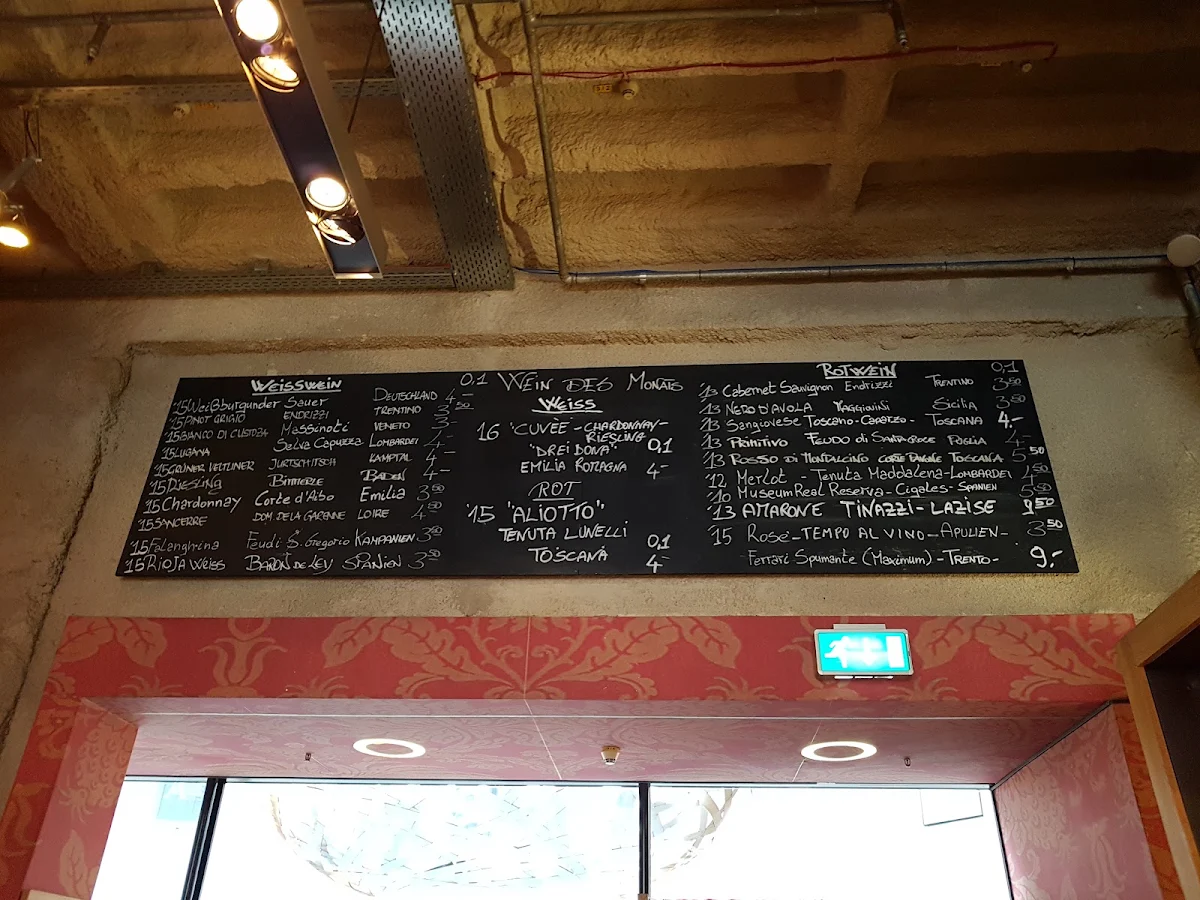 WEISSWEIN 0,1
'15 Weißburgunder Sauer DEUTSCHLAND 4,-
'15 PINOT GRIGIO ENDRIZZI TRENTINO 3,50
'15 BIANCO DI CUSTOZA Massinoti VENETO 3,-
'15 LUGANA Selva Capuzza LOMBARDEI 4,-
'15 GRÜNER VELTLINER JURTSCHITSCH KAMPTAL 4,-
'15 RIESLING BADEN 4,-
'15 Chardonnay Corte d'Aibo Emilia 3,50
'15 SANCERRE DOM. DE LA GARENNE LOIRE 4,50
'15 Falanghina Feudi S. Gregorio KAMPANIEN 3,50
'15 RIOJA WEISS BARON DE LEY SPANIEN 3,50
WEIN DES MONATS
WEISS
16 "CUVEE - CHARDONNAY-
RIESLING
"DREI DONA" 0,1
EMILIA ROMAGNA 4,-
ROT
'15 "ALIOTTO"
TENUTA LUNELLI
0,1
TOSCANA 4,-
ROTWEIN 0,1
'13 Cabernet Sauvignon Endrizzi TRENTINO 3,50
'13 NERO D'AVOLA Sicilia 3,50
'13 Sangiovese Toscano - - TOSCANA 4,-
'13 PRIMITIVO FEUDO DI SANTA CROCE PUGLIA 4,-
'13 ROSSO DI MONTALCINO CORTE PAVONE TOSCANA 5,50
'12 Merlot - Tenuta Maddalena - LOMBARDEI 4,-
'10 Museum Real Reserva - Cigales - SPANIEN 5,50
'13 AMARONE TINAZZI - LAZISE 9,50
'15 ROSÉ - TEMPO AL VINO - APULIEN - 3,50
Ferrari Spumante (Maximum) - TRENTO - 9,-